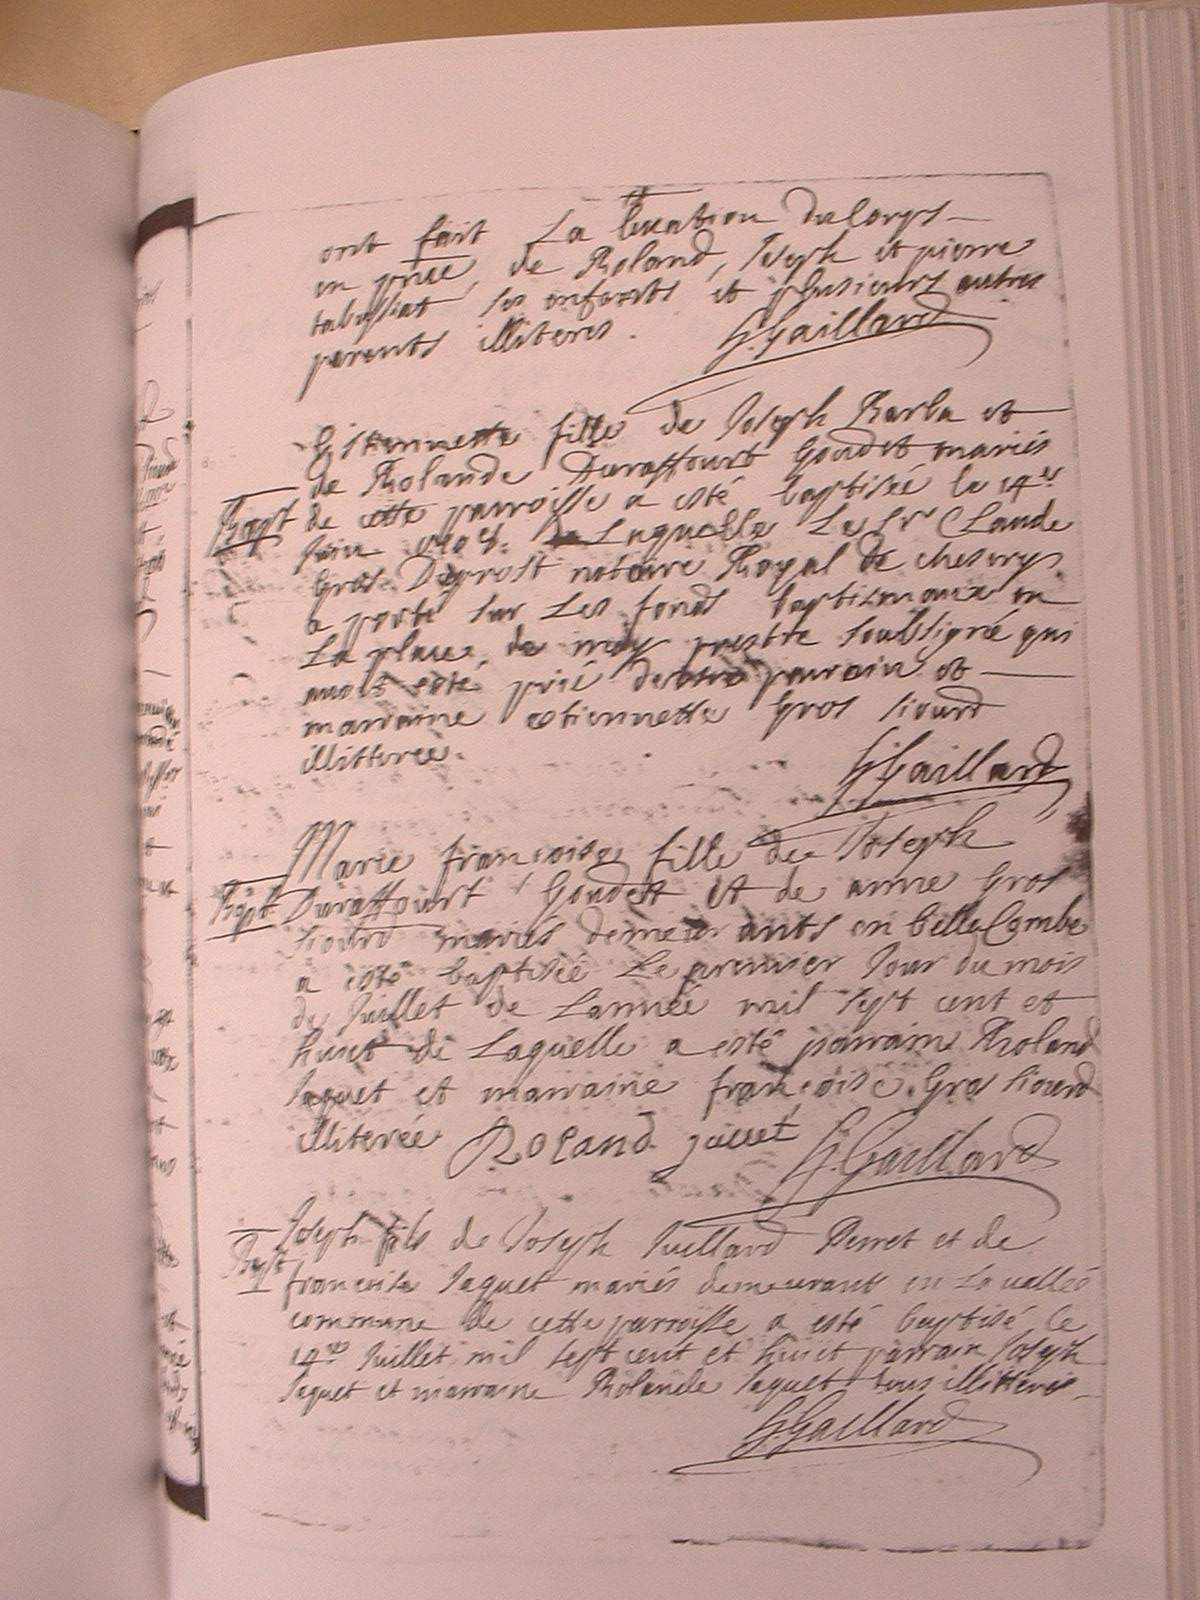 ont fait La levation du Corps
en pnce de Roland, Joseph et pierre
tabussiat ses enfants et plusieurs autres
parents illiteres.
G. Gaillard
Estiennette fille de Joseph Barba et
de Rolande Duraffourt Goudet mariés
Bapt de cette parroisse a esté baptisée le 14e
Juin 1708. de Laquelle Le Sr Claude
Gros Deprost notaire Royal de Chevry
a porté sur Les fonds baptismaux en
La place de moy prestre soubsigné qui
avois esté prié destre parrain et
marraine estiennette Gros siourd
illitteree.
G. Gaillard
Marie francoise fille de Joseph
Bapt Duraffourt Goudet et de anne Gros
siourd mariés demeurants en belleCombe
a esté baptisée Le premier Jour du mois
de Juillet de Lannée mil sept cent et
huict de Laquelle a esté parrain Roland
Jaquet et marraine francoise Gros siourd
illiterée Roland G. Gaillard
Joseph fils de Joseph Juillard Perret et de
Bapt francoise Jaquet mariés demeurants en La vallée
commune de cette parroisse a esté baptisé Le
14e Juillet mil sept cent et huict parrain Joseph
Jaquet et marraine Rolande Jaquet tous illitterés
G. Gaillard